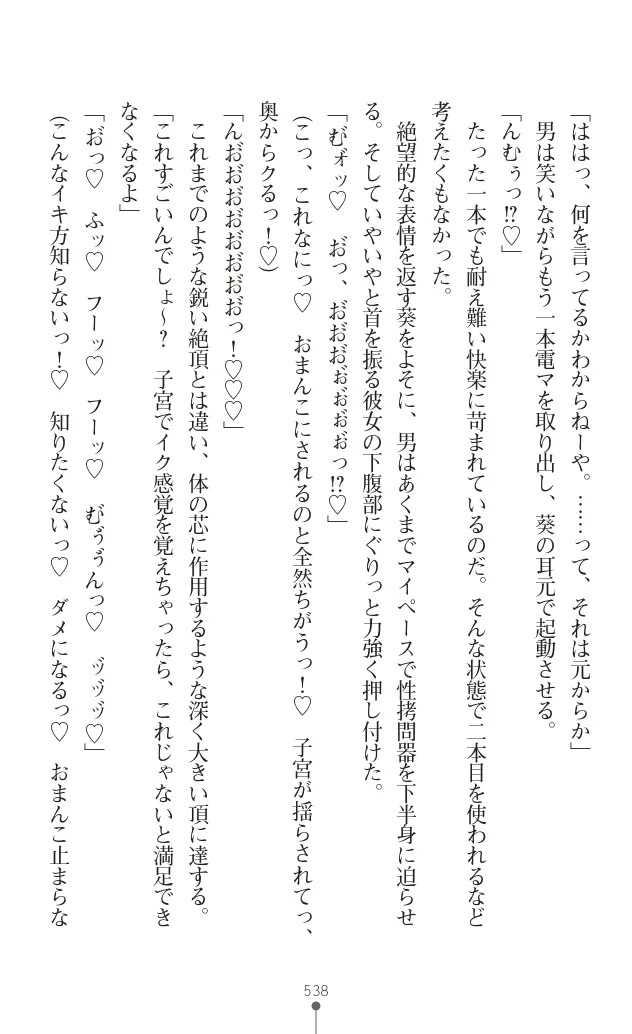 「ははっ、何を言ってるかわからねーや。……って、それは元からか」
　男は笑いながらもう一本電マを取り出し、葵の耳元で起動させる。
「んむぅっ!?♡」
　たった一本でも耐え難い快楽に苛まれているのだ。そんな状態で二本目を使われるなど
考えたくもなかった。
　絶望的な表情を返す葵をよそに、男はあくまでマイペースで性拷問器を下半身に迫らせ
る。そしていやいやと首を振る彼女の下腹部にぐりっと力強く押し付けた。
「むォ゙ッ♡　お゙っ、お゙お゙お゙ぉ゙ぉ゙ぉ゙ぉ゙っ!?♡」
(こっ、これなにっ♡　おまんこにされるのと全然ちがうっ！♡　子宮が揺らされてっ、
奥からクるっ！♡)
「んお゙お゙お゙お゙お゙お゙お゙お゙っ！♡♡♡」
　これまでのような鋭い絶頂とは違い、体の芯に作用するような深く大きい頂に達する。
「これすごいんでしょ～？　子宮でイク感覚を覚えちゃったら、これじゃないと満足でき
なくなるよ」
「お゙っ♡　ふッ♡　フーッ♡　フーッ♡　む゙ぅ゙ぅ゙んっ♡　ッ゙ッ゙ッ゙♡」
(こんなイキ方知らないっ！♡　知りたくないっ♡　ダメになるっ♡　おまんこ止まらな
538